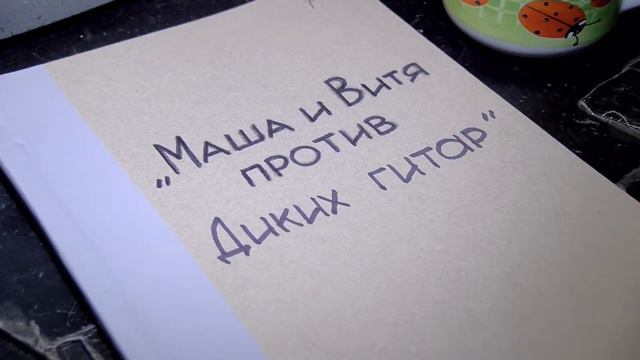 „Маша и Витя
против
Диких гитар"